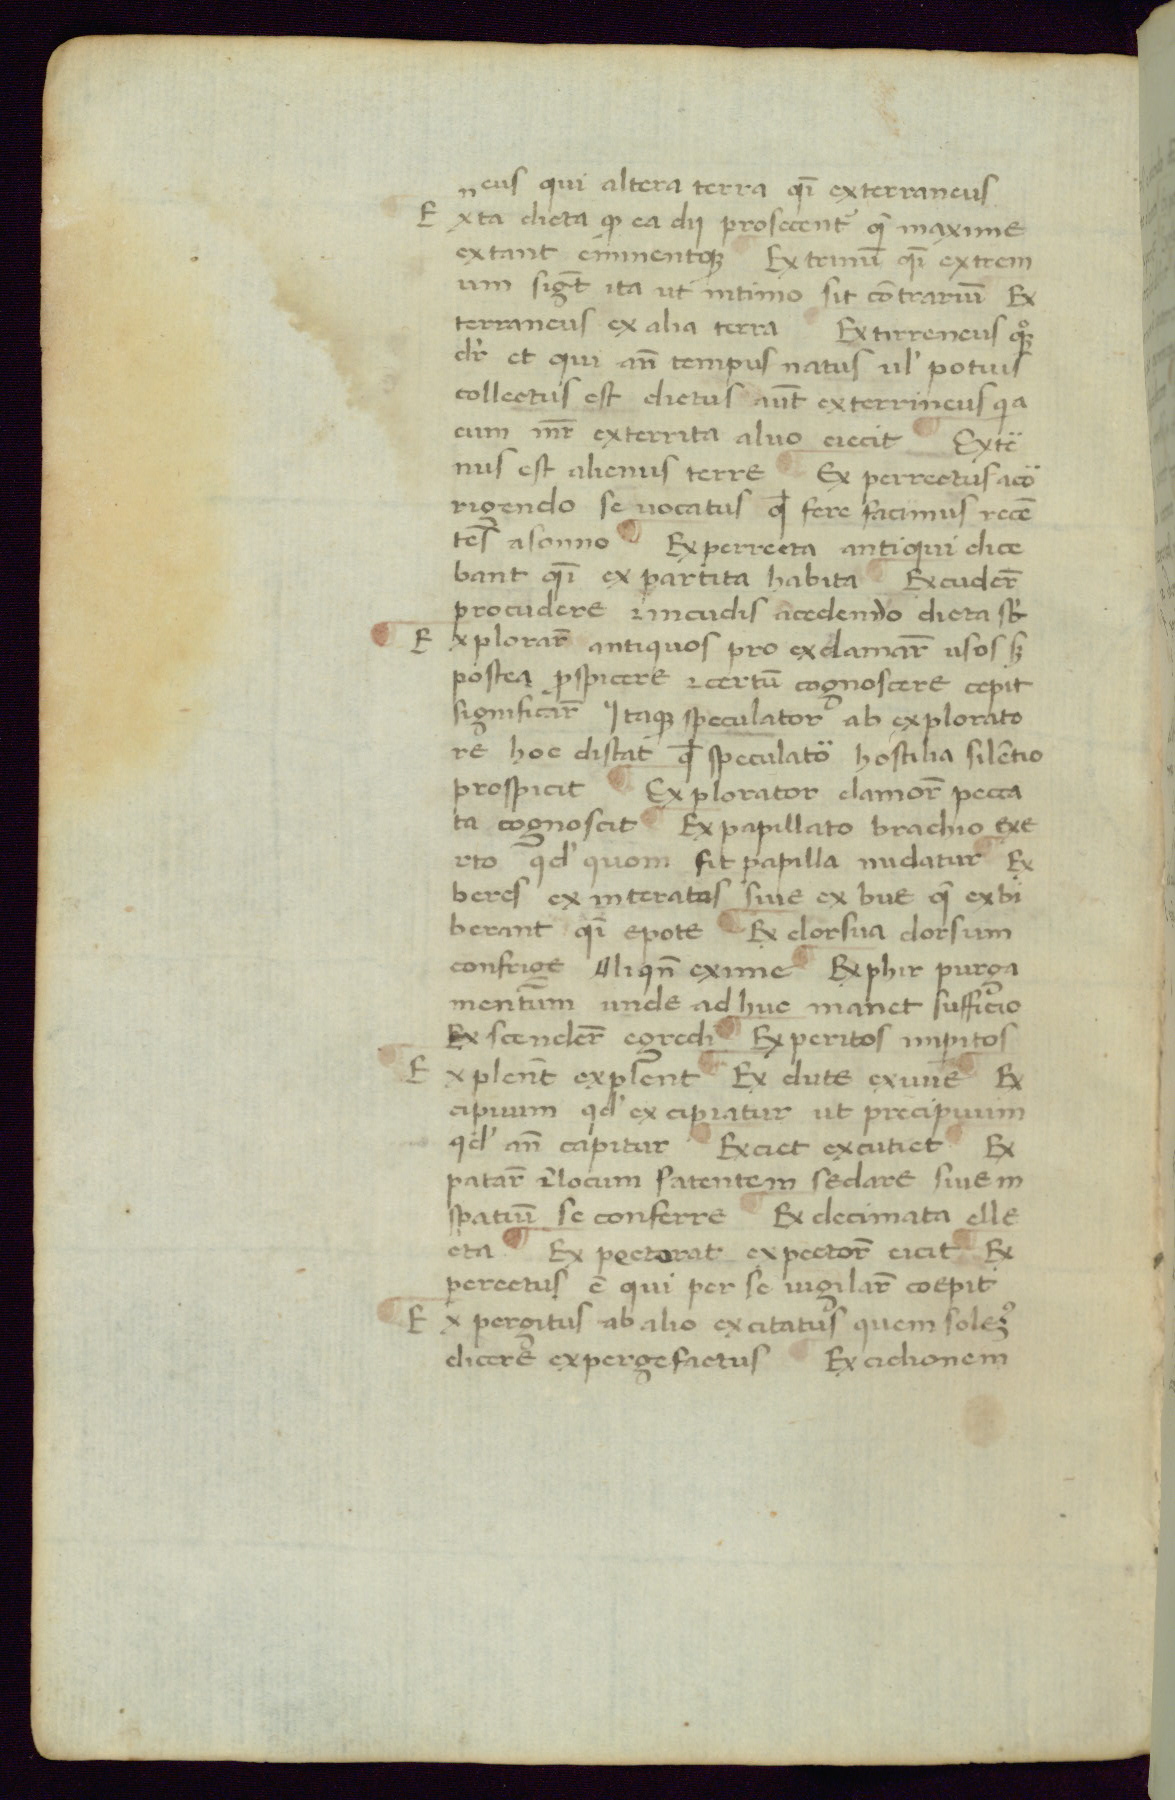 neus qui altera terra qī exterraneus
Exta dicta qꝫ ea dij prosecent᷑ q̄ maxime
extant eminentqꝫ Extrimū qī extrem
um sig̅t ita ut intimo sit cōtrariū Ex
terraneus ex alia terra Extirreneus qͦqꝫ
dr̄ et qui an̄ tempus natus ul' potius
collectus est dictus aūt exterrineus qia
eum mr̄ exterrita aluo eiecit Exte
nus est alienus terre Experrectus aco
rigendo se uocatus qđ fere facimus recē
tes asonno Experrecta antiqui dice
bant qī ex partita habita Excuder̄
procudere ⁊incudis acedendo dicta st̄
Explorar̄ antiquos pro exclamar̄ usos sꝫ
postea ꝓspicere ⁊certū cognoscere cepit
significar̄ Itaqꝫ speculator ab explorato
re hoc distat qđ speculato hostilia silētio
prospicit Explorator clamor̄ pecca
ta cognoscit Expapillato brachio exe
rto qd' quom fit papilla nudatur Ex
beres exinteratas siue ex bue q̄ exbi
berant qī epote Exdorsua dorsum
confrige Aliqn̄ exime Exphir purga
mentum unde adhuc manet sufficio
Exscender̄ egredi Experitos impitos
Explen̄t explent Exdute exuue Ex
cipuum qd' excipiatur ut precipuum
qd' an̄ capitur Exciet excutiet Ex
patar̄ īlocum Patentem sedare siue in
spatiū se conferre Exdecimata elle
cta Expectorat expector̄ eicit Ex
perectus ē qui per se uigilar̄ coepit
Expergitus ab alio excitatus quem solemꝰ
dicere expergefactus Excidionem